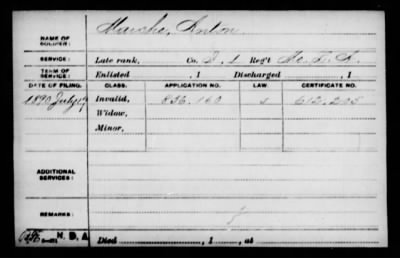 NAME OF SOLDIER: Anton
SERVICE: Late rank, Co. Reg't
TERM OF SERVICE: Enlisted , 1 Discharged , 1
DATE OF FILING. CLASS. APPLICATION NO. LAW. CERTIFICATE NO.
1890 July Invalid, 836.160 612.205
Widow,
Minor,
ADDITIONAL SERVICES:
REMARKS:
N. D. A. Died , 1 , at